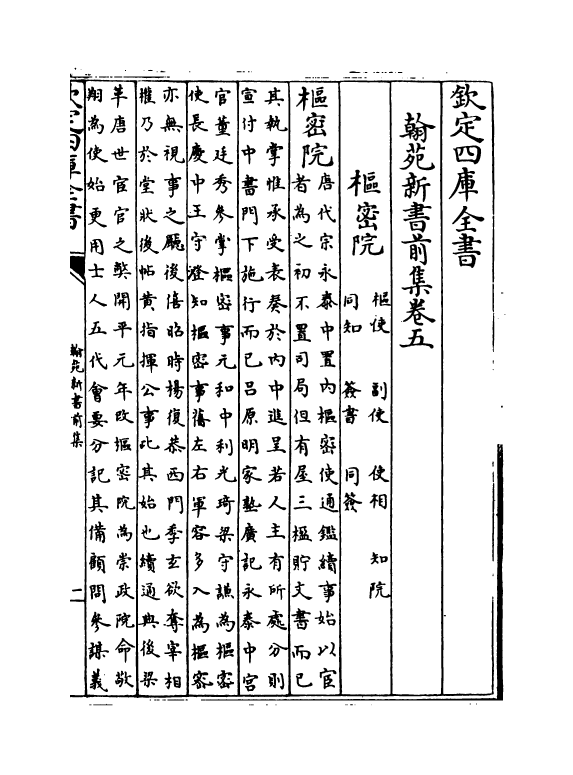 欽定四庫全書
翰苑新書前集卷五
樞密院 樞使 副使 使相 知院
同知 簽書 同簽
樞密院 唐代宗永泰中置内樞密使通鑑續事始以宦
者為之初不置司局但有屋三楹貯文書而已
其執掌惟承受表奏於内中進呈若人主有所處分則
宣付中書門下施行而已吕原明家塾廣記永泰中宫
官董廷秀參掌樞密事元和中利光琦梁守謙為樞密
使長慶中王守澄知樞密事舊左右軍容多入為樞密
亦無視事之廳後僖昭時楊復恭西門季玄欲奪宰相
權乃於堂狀後帖黄指揮公事此其始也續通典後梁
革唐世宦官之弊開平元年改樞密院為崇政院命敬
翔為使始更用士人五代會要分記其備顧問參謀義
欽定四庫全書
翰苑新書前集
二